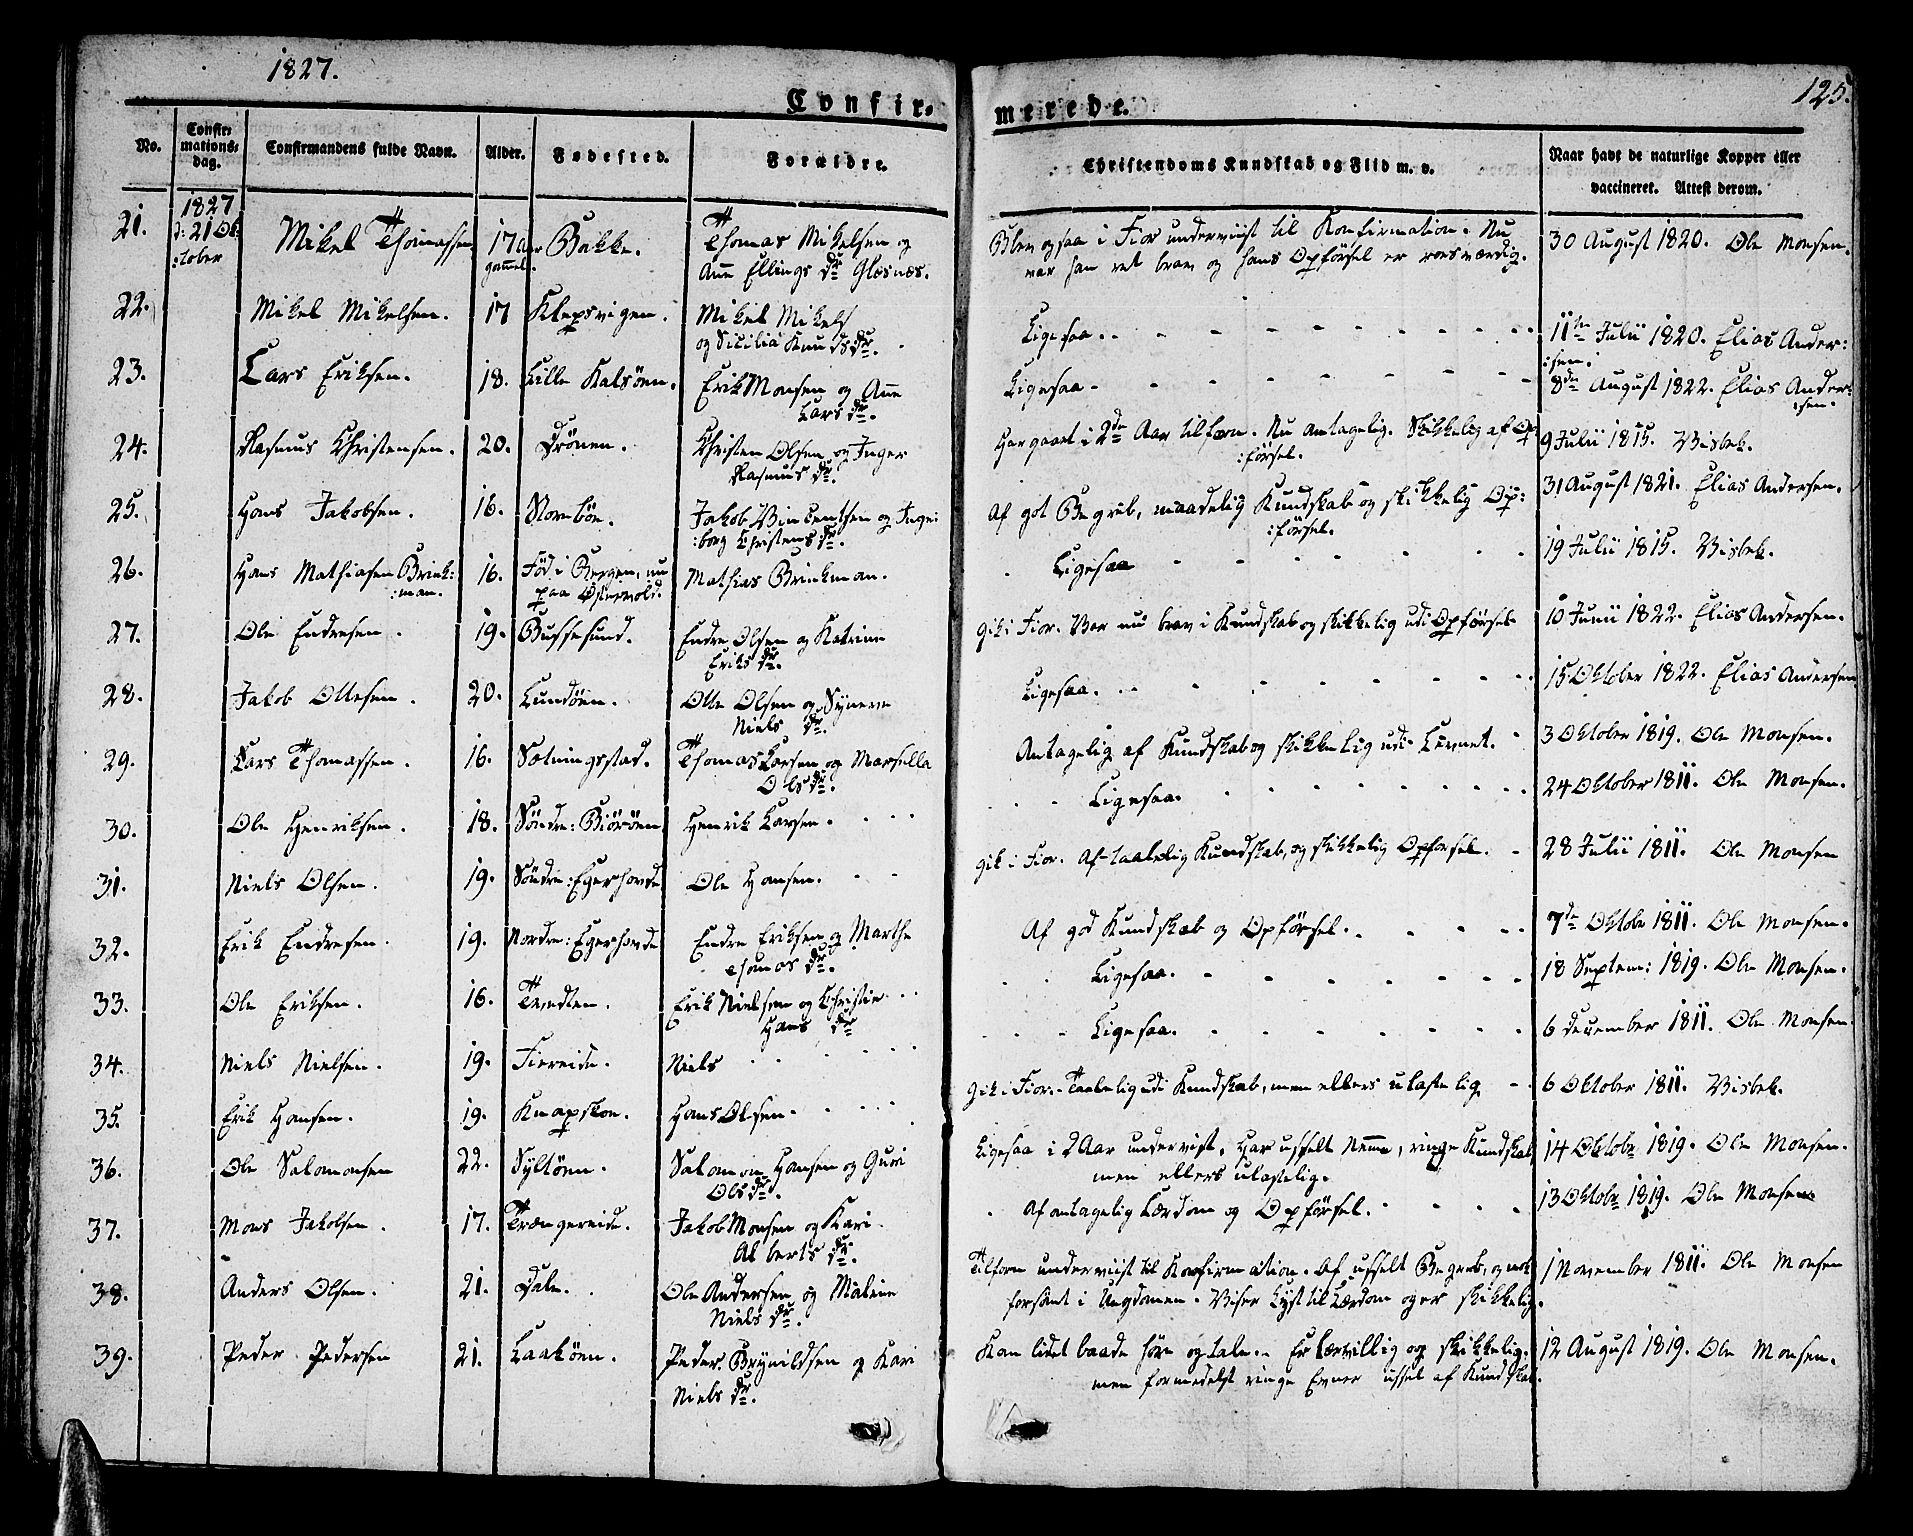 1827.
125.
Confir-
merede.
No.
Confir-
mations-
dag.
Confirmandens fulde Navn.
Alder.
Fødested.
Forældre.
Christendoms Kundskab og Flid m. v.
Naar havt de naturlige Kopper eller
vaccineret. Attest derom.
21.
1827
d: 21 Ok
:tober
Mikel Thomassen
17 aar
gammel.
Bakke.
Thomas Mikelsen og
Anne Ellings dr Glesnæs.
Blev ogsaa i Fior underviist til Konfirmation. Nu
var han ret brav og hans Opførsel er roesværdig.
30 August 1820. Ole Monsen.
22.
Mikel Mikelsen.
17
Klepsvigen.
Mikel Mikels
og Sicilia Knuds dr.
Ligesaa.
11te Julii 1820. Elias Ander:
:sen.
23.
Lars Eriksen.
18.
Lille Kalsöen.
Erik Monsen og Anne
Lars dr.
Ligesaa
8de August 1822. Elias Ander:
:sen.
24.
Rasmus Christensen.
20.
Drönen.
Christen Olsen og Inger
Rasmus dr.
Har gaaet i 2de Aar tilforn. Nu antagelig. Skikkelig af Op
:førsel.
9 Julii 1815. Visbek.
25.
Hans Jakobsen.
16.
Stornbön.
Jakob Vincentsen og Inge:
:borg Christens dr.
Af got Begreb, maadelig Kundskab og skikkelig Op:
:førsel.
31 August 1821. Elias Andersen.
26.
Hans Mathiasen Brink:
:man.
16.
Fød i Bergen, nu
paa Østervold.
Mathias Brinkman.
Ligesaa
19 Julii 1815. Visbek.
27.
Ole Endresen.
19.
Bussesund.
Endre Olsen og Katrine
Eriks dr.
Gik i Fior. Var nu brav i Kundskab og skikkelig udi Opførsel
10 Junii 1822. Elias Andersen.
28.
Jakob Ottesen.
20.
Lundöen.
Otte Olsen og Synneve
Niels dr.
Ligesaa.
15 Oktober 1822. Elias Andersen
29.
Lars Thomassen.
16.
Solningsstad.
Thomas Larsen og Marsella
Ols dr.
Antagelig af Kundskab og skikkelig udi Levnet.
3 Oktober 1819. Ole Monsen.
30.
Ole Henriksen.
18.
Söndre: Biöröen
Henrik Larsen.
Ligesaa.
24 Oktober 1811. Ole Monsen.
31.
Niels Olsen.
19.
Söndre: Egershovde
Ole Hansen.
Gik i Fior. Af taalelig Kundskab, og skikkelig Opførsel.
28 Julii 1811. Ole Monsen
32.
Erik Endresen.
19.
Nordre: Egershovde
Endre Eriksen og Marthe
Thomas dr.
Af god Kundskab og Opførsel.
7de Oktobr 1811. Ole Monsen.
33.
Ole Eriksen.
16.
Tvedten.
Erik Nielsen og Christie
Hans dr
Ligesaa.
18 Septem: 1819. Ole Monsen.
34.
Niels Nielsen.
19.
Fiereide.
Niels
Ligesaa.
6 December 1811. Ole Monsen.
35.
Erik Hansen.
19.
Knapskoe.
Hans Olsen.
Gik i Fior. Taalelig udi Kundskab, men ellers ulastelig
6 Oktober 1811. Visbek.
36.
Ole Salomonsen
22.
Syltöen.
Salomon Hansen og Guri
Ols dr.
Ligesaa i 2 Aar undervist. Har usselt Nemme, ringe Kundskab,
men ellers ulastelig.
14 Oktobr 1819. Ole Monsen.
37.
Mons Jakobsen.
17.
Trængereide.
Jakob Monsen og Kari
Alberts dr.
Af antagelig Lærdom og Opførsel.
13 Oktobr 1819. Ole Monsen
38.
Anders Olsen.
21.
Dale.
Ole Andersen og Malene
Niels dr.
Tilforn underviist til Konfirmation. Af usselt Begreb, og nok
forsømt i Ungdommen. Viser Lyst til Lærdom og er skikkelig.
1 November 1811. Ole Monsen
39.
Peder Pedersen
21.
Laaköen.
Peder Brynildsen og Kari
Niels dr.
Kan lidet baade høre og tale. Er lærvillig og skikkelig.
men formedelst ringe Evner ussel af Kundskab.
12 August 1819. Ole Monsen.